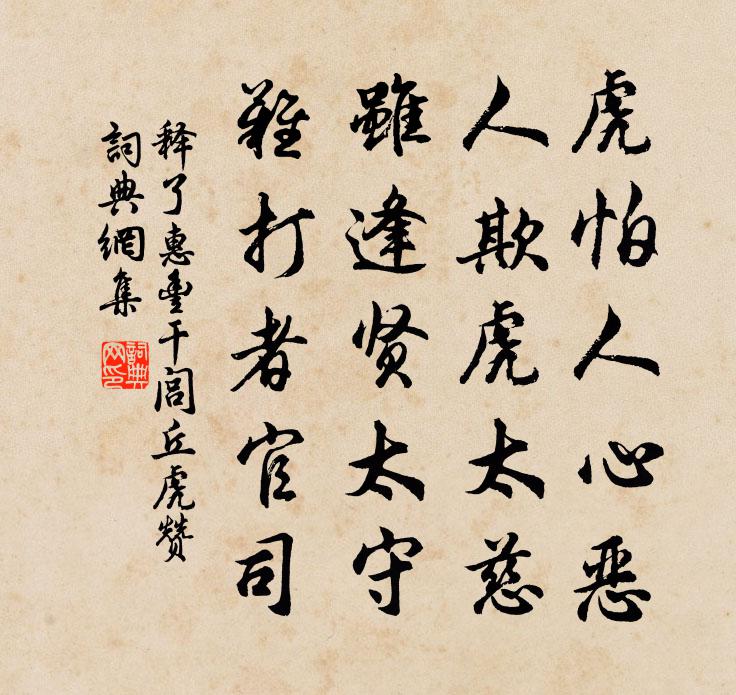 虎怕人心恶
人欺虎太慈
雖逢贤太守
難打者官司
释了惠豐干閭丘虎赞
詞典網集
詞典网印